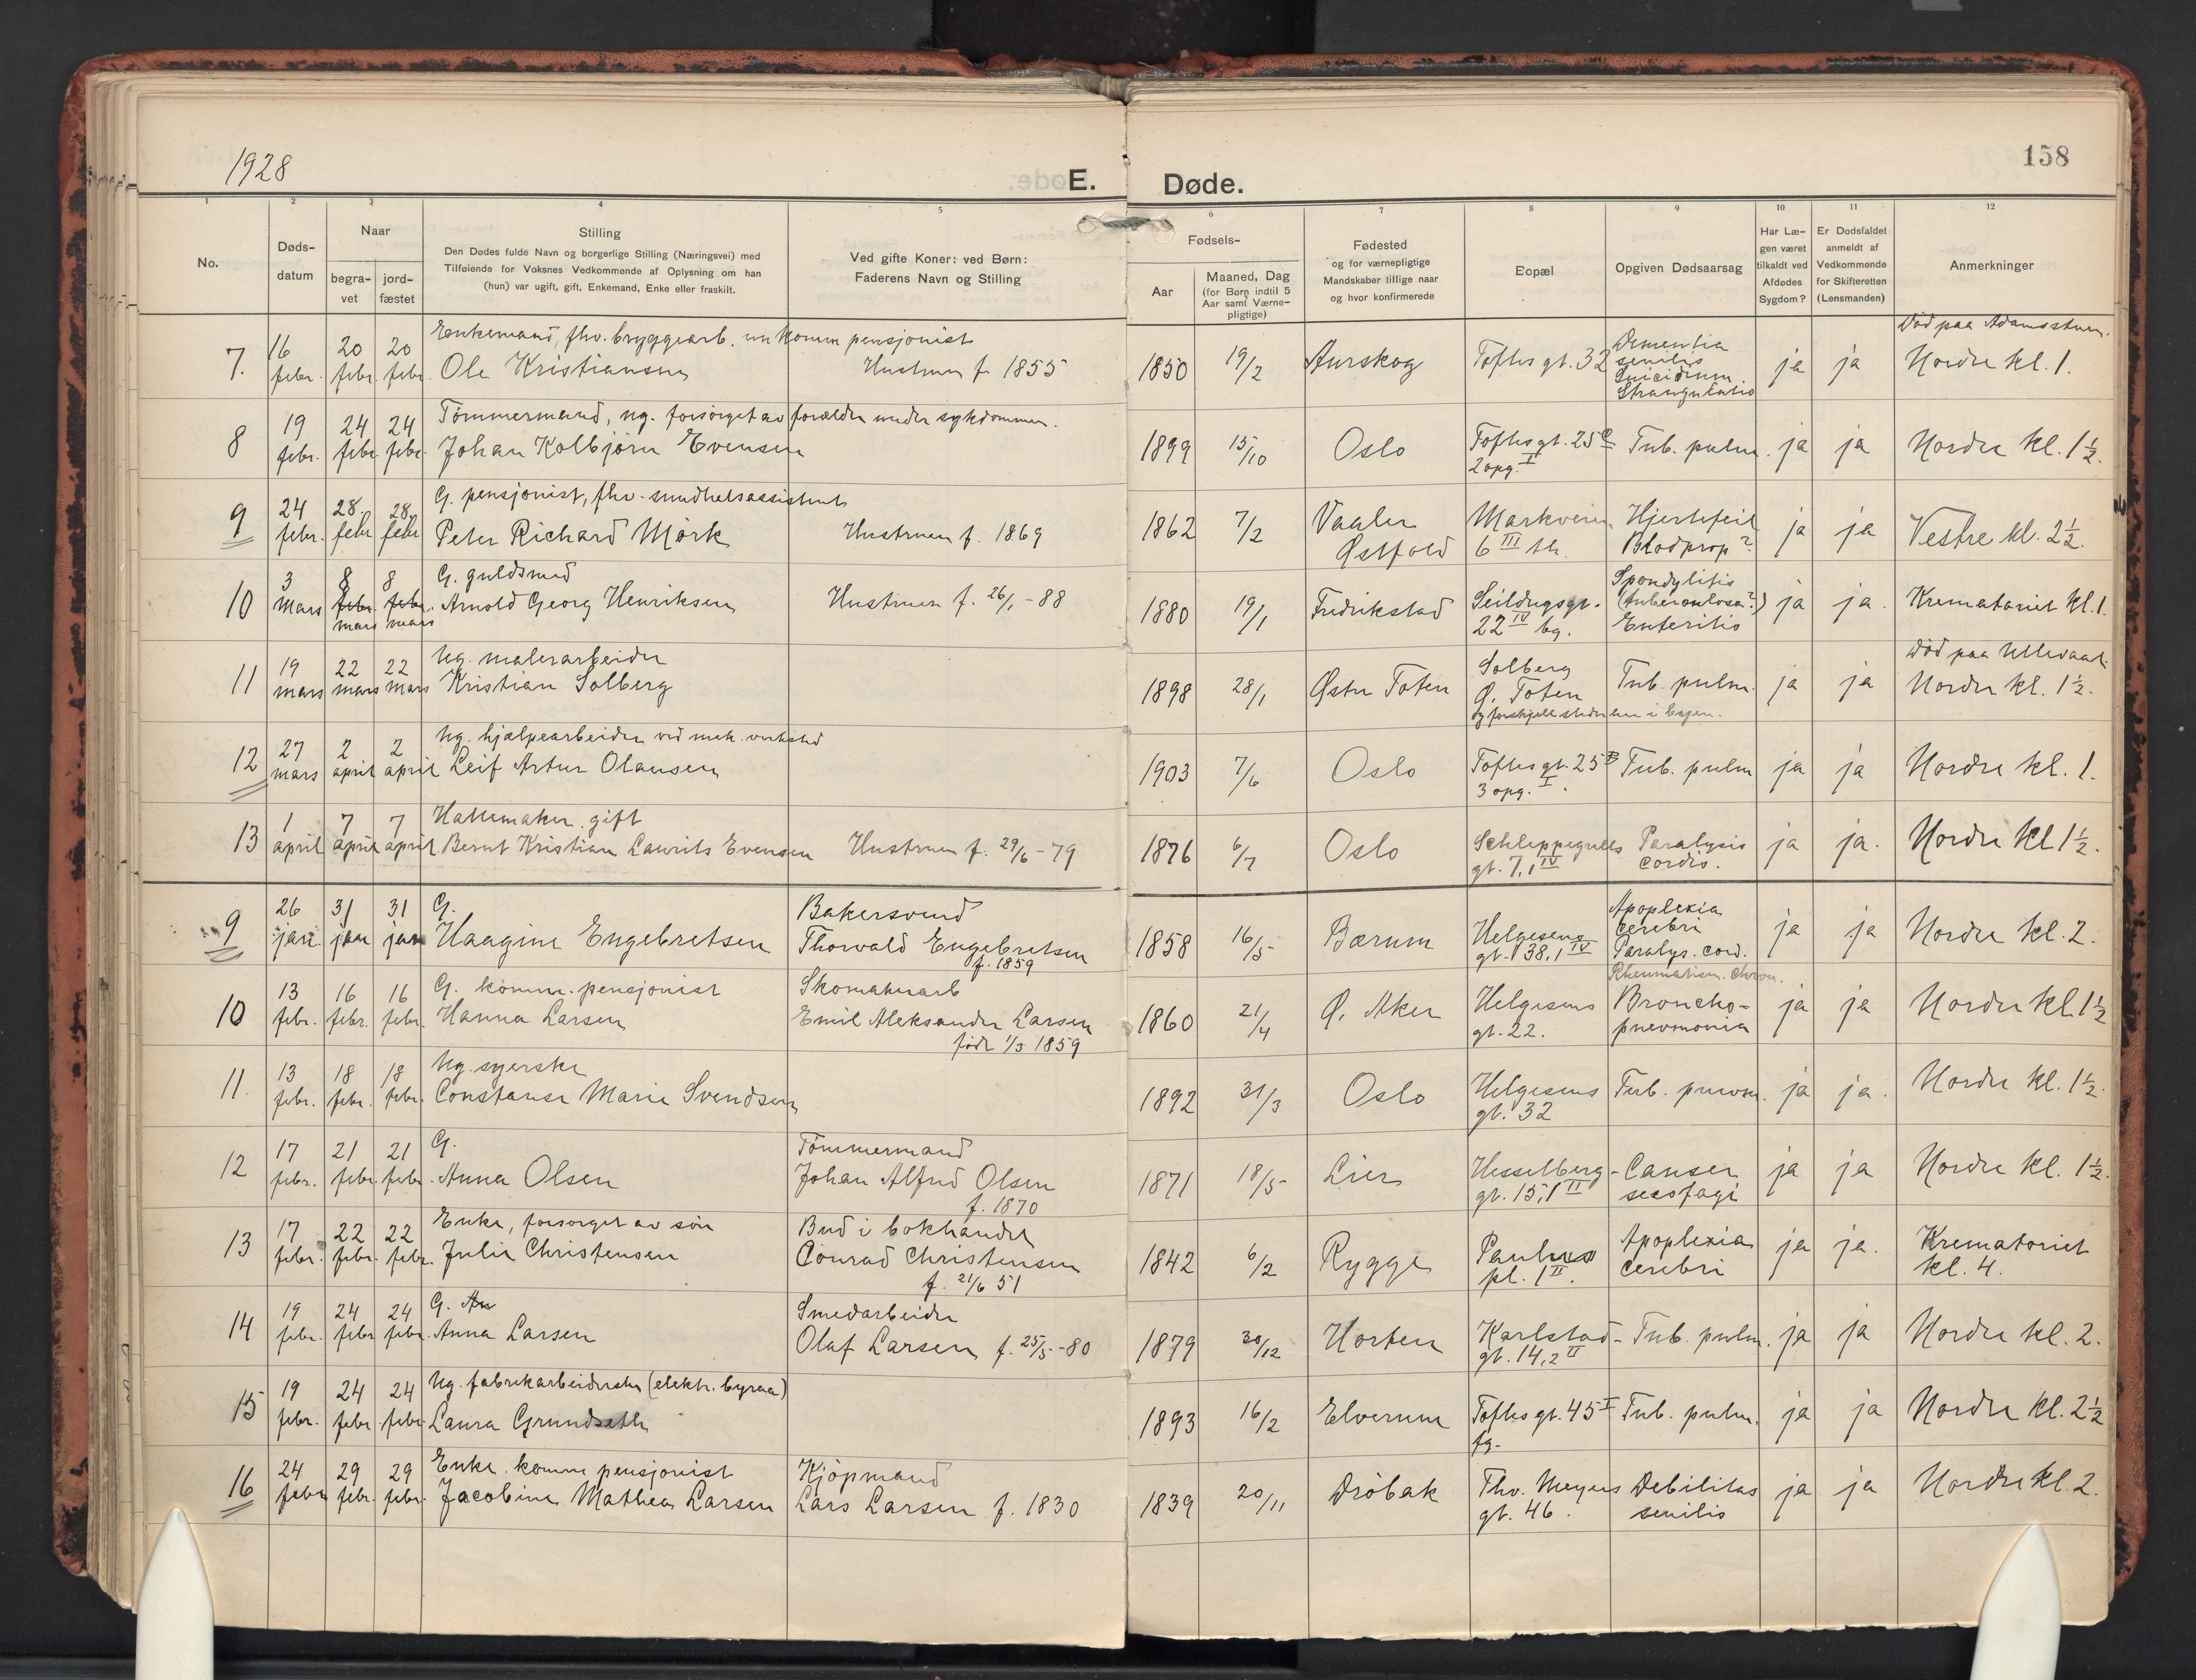 1928
E. Døde.
158
1 2 3 4 5 6 7 8 9 10 11 12
No.
Døds-
datum
Naar
begra-
vet
jord-
fæstet
Stilling
Den Dødes fulde Navn og borgerlige Stilling (Næringsvei) med
Tilføiende for Voksnes Vedkommende af Oplysning om han
(hun) var ugift, gift, Enkemand, Enke eller fraskilt.
Ved gifte Koner: ved Børn:
Faderens Navn og Stilling
Fødsels-
Aar
Maaned, Dag
(for Børn indtil 5
Aar samt Værne-
pligtige)
Fødested
og for værnepligtige
Mandskaber tillige naar
og hvor konfirmerede
Bopæl
Opgiven Dødsaarsag
Har Læ-
gen været
tilkaldt ved
Afdødes
Sygdom?
Er Dødsfaldet
anmeldt af
Vedkommende
for Skifteretten
(Lensmanden)
Anmerkninger
7. 16 febr. 20 febr. 20 febr. Enkemand, fhv. bryggearb. komm pensjonist
Ole Kristiansen Hustruen f. 1855 1850 19/2 Aurskog Toftes gt. 32 Dementia senilis Suicidium Strangulatio ja ja Død paa Adamstuen. Nordre kl. 1.
8 19 febr. 24 febr. 24 febr. Tømmermand, ug. forsørget av forældre under sykdommen.
Johan Kolbjørn Evensen 1899 15/10 Oslo Toftes gt. 25 2 opg. I Tub. pulm. ja ja Nordre kl. 1½.
9 24 febr. 28 febr 28. febr G. pensjonist, fhv. sundhetsassistent
Peter Richard Mørk Hustruen f. 1869 1862 7/2 Vaaler Østfold Markveien 6 III th. Hjertefeil Blodprop? ja ja Vestre kl. 2½.
10 3 mars 8 febr. mars 8 febr. mars G. guldsmed
Arnold Georg Henriksen Hustruen f. 26/1 - 88 1880 19/1 Fredrikstad Seildugsgt. 22 IV bg. Spondylitis (tuberculosa?) Enteritis ja ja. Krematoriet kl. 1.
11 19 mars 22 mars 22 mars Ug. malerarbeider
Kristian Solberg 1898 28/1 Østre Toten Solberg Ø. Toten og forskjell. steder her i byen. Tub. pulm. ja ja Død paa Ullevaal. Nordre kl. 1½.
12 27 mars 2 april 2 april Ug. hjælpearbeider ved mek. verksted
Leif Artur Olausen 1903 7/6 Oslo Toftes gt. 25 B 3 opg. I. Tub. pulm ja ja Nordre kl. 1.
13 1 april 7 april 7 april Hattemaker gift
Bernt Kristian Laurits Evensen Hustruen f. 29/6 - 79 1876 6/7 Oslo Schleppegrells gt. 7, 1 IV Paralysis cordis. ja ja. Nordre kl 1½.
9 26 jan. 31 jan 31 jan G.
Haagine Engebretsen Bakersvend Thorvald Engebretsen f. 1859 1858 16/5 Bærum Helgesens gt. 38, 1 IV Apoplexia cerebri Paralys. cord. ja ja Nordre kl. 2.
10 13 febr. 16 febr. 16 febr. G. komm. pensjonist
Hanna Larsen Skomakerarb Emil Aleksander Larsen født 1/3 1859 1860 21/4 Ø. Aker Helgesens gt. 22. Rheumatism. chron. Broncho- pnevmonia ja ja Nordre kl. 1½
11. 13 febr. 18 febr. 18 febr. Ug. syerske
Constanse Marie Svendsen 1892 31/3 Oslo Helgesens gt. 32 Tub. pnevm. ja ja. Nordre kl. 1½.
12 17 febr. 21 febr. 21 febr. G.
Anna Olsen Tømmermand Johan Alfred Olsen f. 1870 1871 18/5 Lier Hesselberg- gt. 15, 1 II Canser oesofagi ja ja Nordre kl. 1½.
13 17 febr. 22 febr. 22 febr. Enke, forsørget av søn
Julie Christensen Bud i bokhandel Conrad Christensen f. 21/6 51 1842 6/2 Rygge Paulus pl. 1 II. Apoplexia cerebri ja ja. Krematoriet kl. 4.
14 19 febr. 24 febr 24 febr. G. An
Anna Larsen Smedarbeider Olaf Larsen f. 25/5 - 80 1879 30/12 Horten Karlstad- gt. 14, 2 II Tub. pulm. ja ja Nordre kl. 2.
15 19 febr. 24 febr. 24 febr. Ug. fabrikarbeiderske (elektr. byraa)
Laura Grundseth 1893 16/2 Elverum Toftes gt. 45 I fg. Tub. pulm. ja ja Nordre kl. 2½
16 24 febr 29 febr. 29 febr. Enke. komm pensjonist
Jacobine Mathea Larsen Kjøpmand Lars Larsen f. 1830 1839 20/11 Drøbak Thv. Meyers gt. 46. Debilitas senilis ja ja Nordre kl. 2.